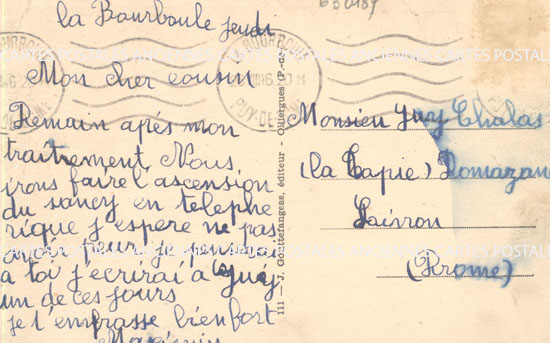 630189
la Bourboule jeudi
Mon cher cousin
Demain après mon
traitement Nous
irons faire l'ascension
du sancy en telephe
rique j'espere ne pas
avoir peur
a toi j'ecrirai a Guy
un de ces jours
je t'embrasse bien fort
LA BOURBOULE
PUY-DE-DOME
111 - J. Goutte
geas, éditeur - Olliergues (P.-de-D.)
Monsieur Guy Chalas
(la Tapie)
(Drome)
ANCIENNES CARTES POSTALES